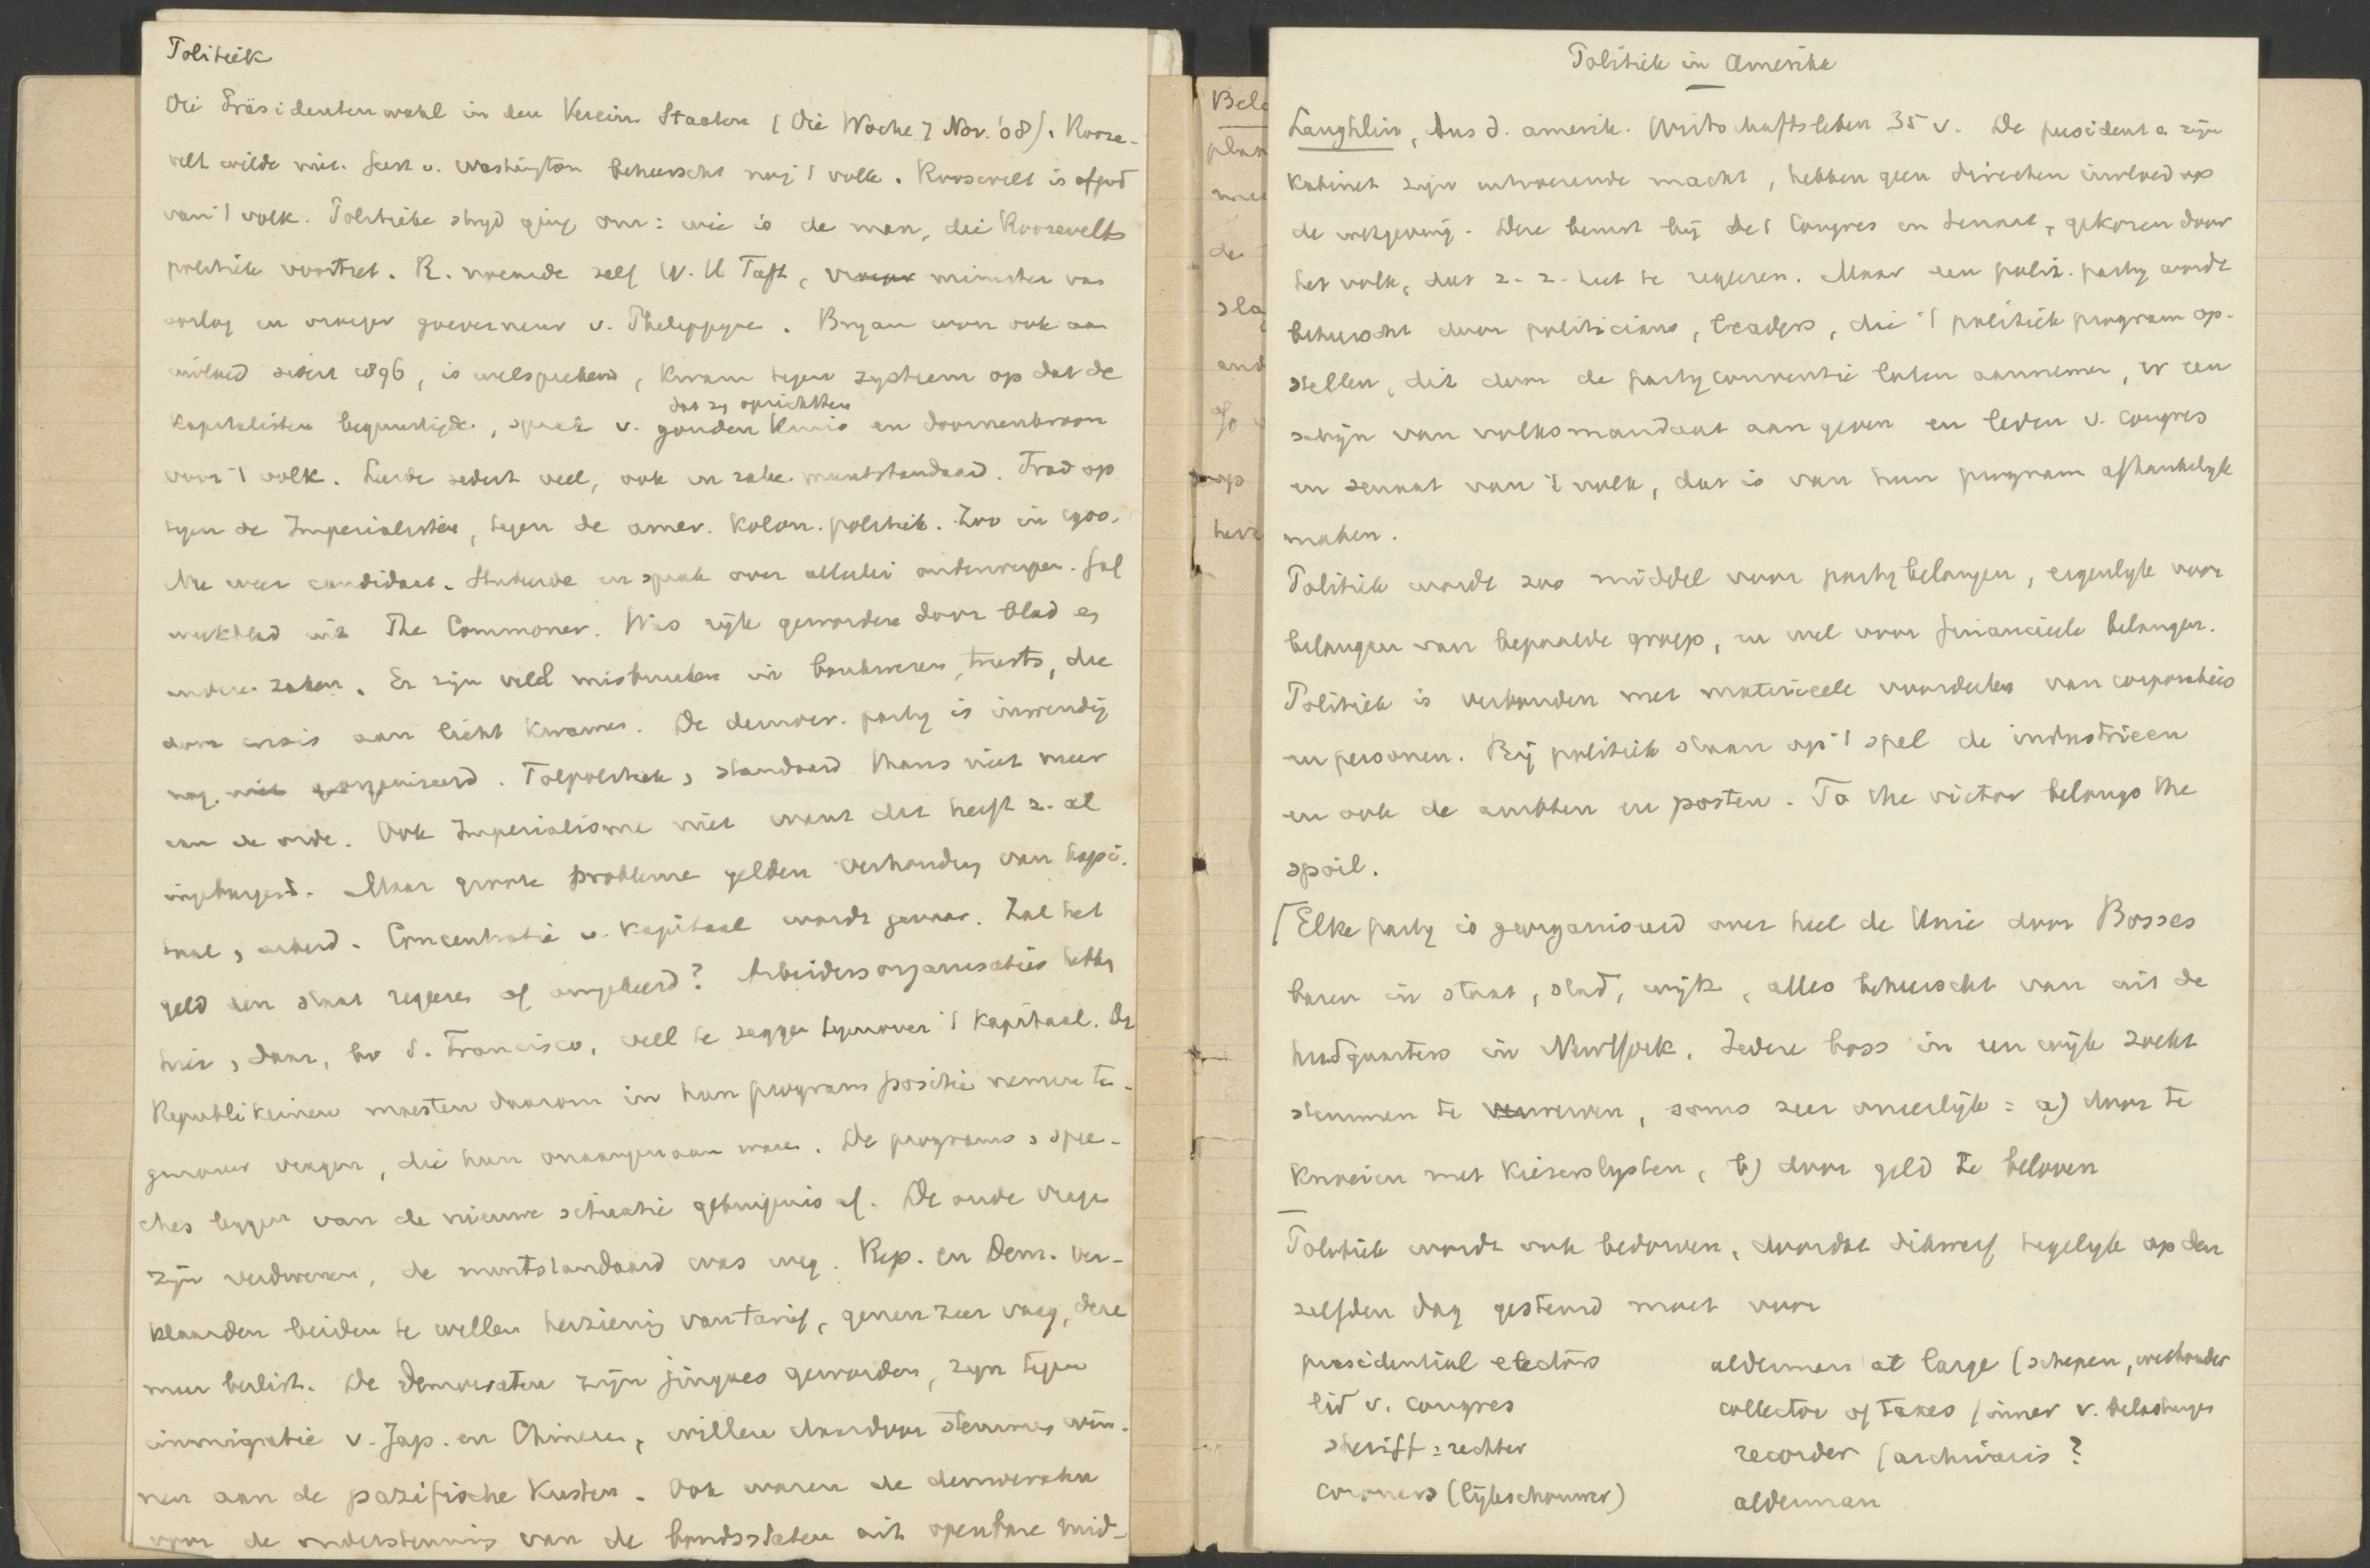 Politiek
Die Präsidentenwahl in den Verein. Staaten (Die Woche 7 Nov. '08). Roose-
velt wilde niet. Geest v. Washington beheerscht nog 't volk. Roosevelt is afgod
van 't volk. Politieke stryd ging om: wie is de man, die Roosevelts
politiek voortzet. R. noemde zelf W. H Taft, vroeger minister van
oorlog en vroeger goeverneur v. Philippyne. Bryan won ook aan
invloed sedert 1896, is welsprekend, kwam tegen systeem op dat de
dat zy oprichtten
kapitalisten begunstigde, sprak v. gouden kruis en doornenkroon
voor 't volk. Leerde sedert veel, ook in zake muntstandaard. Trad op
tegen de Imperialisten, tegen de amer. kolon. politiek. Zoo in 1900.
Nu weer candidaat. Studeerde en sprak over allerlei onderwerpen. Gaf
weekblad uit The Commoner. Was ryk geworden door blad en
andere zaken. Er zijn veel misbruiken in bankwezen, trusts, die
door crisis aan licht kwamen. De democr. party is inwendig
nog niet georganiseerd. Tolpolitiek, standaard thans niet meer
aan de orde. Ook Imperialisme niet want dat heeft z. al
ingeburgerd. Maar groote probleme gelden verhouding van kapi-
taal, arbeid. Concentratie v. kapitaal wordt gevaar. Zal het
geld den staat regeren of omgekeerd? Arbeidersorganisaties hebben
hier, daar, bv S. Francisco, veel te zeggen tegenover 't kapitaal. De
Republikeinen moesten daarom in hun program positie nemen te-
genover vragen, die hun onaangenaam waren. De programs, spee-
ches leggen van de nieuwe situatie getuigenis af. De oude vragen
zijn verdwenen, de muntstandaard was weg. Rep. en Dem. ver-
klaarden beiden te willen herziening van tarief, genen zeer vaag, deze
meer beslist. De Democraten zijn jingoes geworden, zyn tegen
immigratie v. Jap. en Chineezen, willen daardoor stemmen win-
nen aan de pazifische kusten. Ook waren de democraten
voor de ondersteuning van de bondsstaten uit openbare mid-
Politiek in Amerika
Laughlin, Aus d. amerik. Wirtschaftsleben 35 v. De president en zijn
kabinet zijn uitvoerende macht, hebben geen directen invloed op
de wetgeving. Deze berust bij het Congres en Senaat, gekozen door
het volk, dat z. z. heet te regeren. Maar een polit. party wordt
beheerscht door politicians, leaders, die 't politiek program op-
stellen, dit door de partyconventie laten aannemen, er een
schijn van volksmandaat aan geven en leden v. congres
en senaat van 't volk, dat is van hun program afhankelyk
maken.
Politiek wordt zoo middel voor partybelangen, eigenlyk voor
belangen van bepaalde groep, en wel voor financieele belangen.
Politiek is verbonden met materieele voordeelen van corporaties
en personen. Bij politiek staan op 't spel de industrieen
en ook de ambten en posten. To the victor belongs the
spoil.
Elke party is georganiseerd over heel de Unie door Bosses
bazen in staat, stad, wijk, alles beheerscht van uit de
headquarters in NewYork. Iedere boss in een wijk zoekt
stemmen te verwerven, soms zeer oneerlijk: a) door te
knoeien met kiezerslysten, b) door geld te beloven
Politiek wordt ook bedorven, doordat dikwerf tegelyk op den
zelfden dag gestemd moet voor
presidential electors
lid v. congres
sheriff = rechter
coroners (lijkschouwer)
aldermen at large (schepen, wethouder
collector of taxes (inner v. belastingen
recorder (archivaris?
alderman